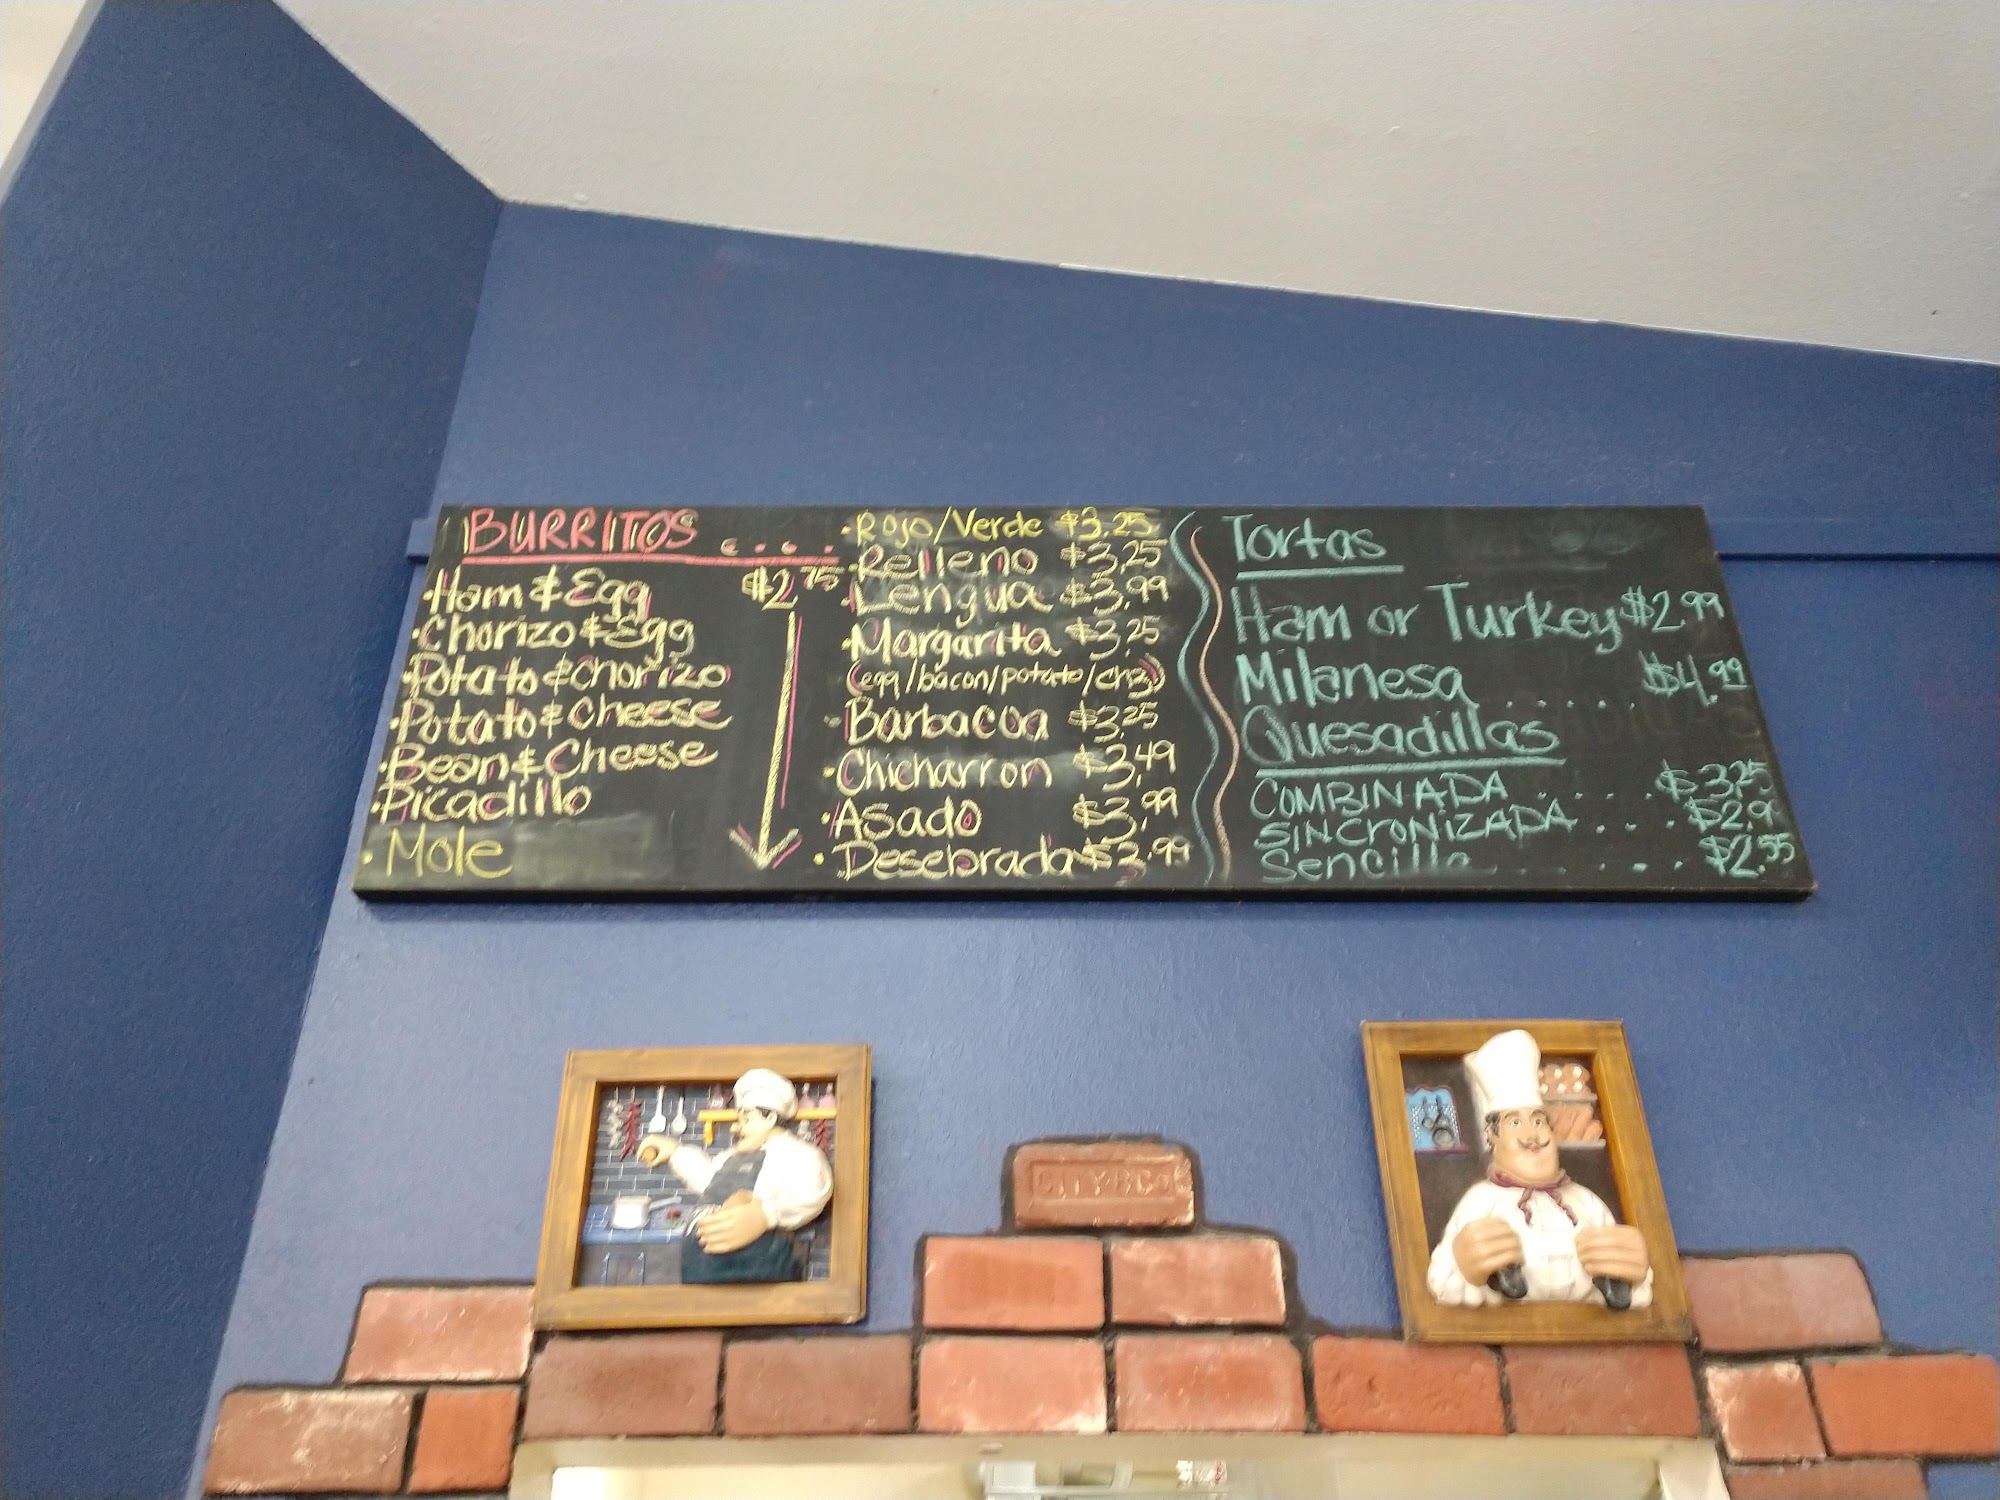 BURRITOS ....
·Ham & Egg $2.75
·Chorizo & Egg
·Potato & chorizo
·Potato & cheese
·Bean & Cheese
·Picadillo
·Mole
·Rojo/Verde $3.25
·Relleno $3.25
·Lengua $3.99
·Margarita $3.25
(egg/bacon/potato/chz)
·Barbacoa $3.25
·Chicharron $3.49
·Asado $3.99
·Desebrada $3.99
Tortas
Ham or Turkey $2.99
Milanesa ...... $4.99
Quesadillas
COMBINADA ..... $3.25
SINCRONIZADA .... $2.9
Sencilla .... $2.55
CITY